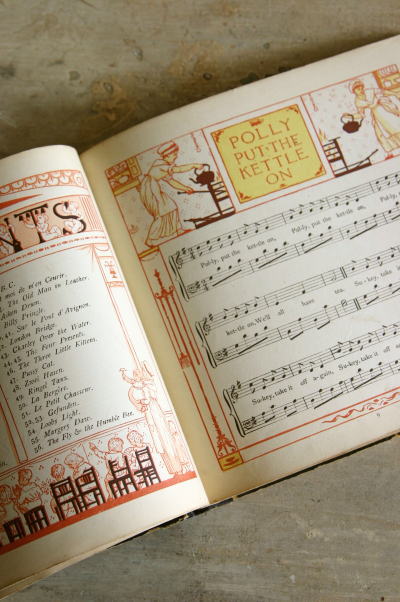 NTS
B.C.
moi de m'en Courir.
The Old Man in Leather.
Aiken Drum.
Billy Pringle.
41. Sur le Pont d'Avignon.
London Bridge.
43. Charley Over the Water.
44, 45. The Four Presents.
46. The Three Little Kittens.
47. Pussy Cat.
48. Zwei Hasen.
49. Ringel Tanz.
50. La Bergère.
51. Le Petit Chasseur.
52, 53. Gefunden.
54. Looby Light.
55. Margery Daw.
56. The Fly & the Humble Bee.
POLLY
PUT·THE
KETTLE
ON
Pol-ly, put the ket-tle on, Pol-ly, put the ket-tle on, Pol-ly,
ket-tle on, We'll all have tea. Su-key, take it
Su-key, take it off a-gain, Su-key, take it off
9